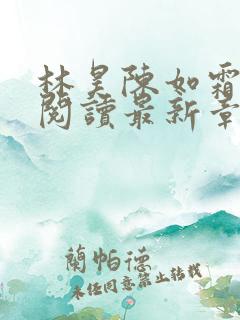 林昊陳如霜
閱讀最新章
蘭帕德
未經同意禁止轉載